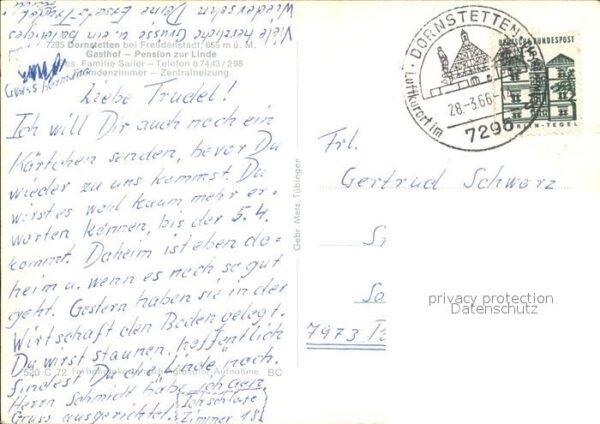 Viele herzliche Grüsse u. ein baldiges
Wiedersehen Deine Ersatz-
7295 Dornstetten bei Freudenstadt, 655 m ü. M.
Gasthof – Pension zur Linde
Bes. Familie Sailer – Telefon 07443/298
Fremdenzimmer – Zentralheizung
Gruss Hermann
Liebe Trudel!
Ich will Dir auch noch ein
Kärtchen senden, bevor Du
wieder zu uns kommst. Du
wirst es wohl kaum mehr er-
warten können, bis der 5.4.
kommt. Daheim ist eben da-
heim u. wenn es noch so gut
geht. Gestern haben sie in der
Wirtschaft den Boden gelegt.
Du wirst staunen, hoffentlich
findest Du die Linde noch.
Herrn Schmidt habe ich Dein
Gruss ausgerichtet.
Ich schlafe
Zimmer 18
520 C 72 Aufnahme BC
Gebr. Metz, Tübingen
DORNSTETTEN
Luftkurort im
28.-3.66
7295
DEUTSCHE BUNDESPOST
BERLIN-TEGEL
Frl.
Gertrud Schwarz
7973
privacy protection
Datenschutz